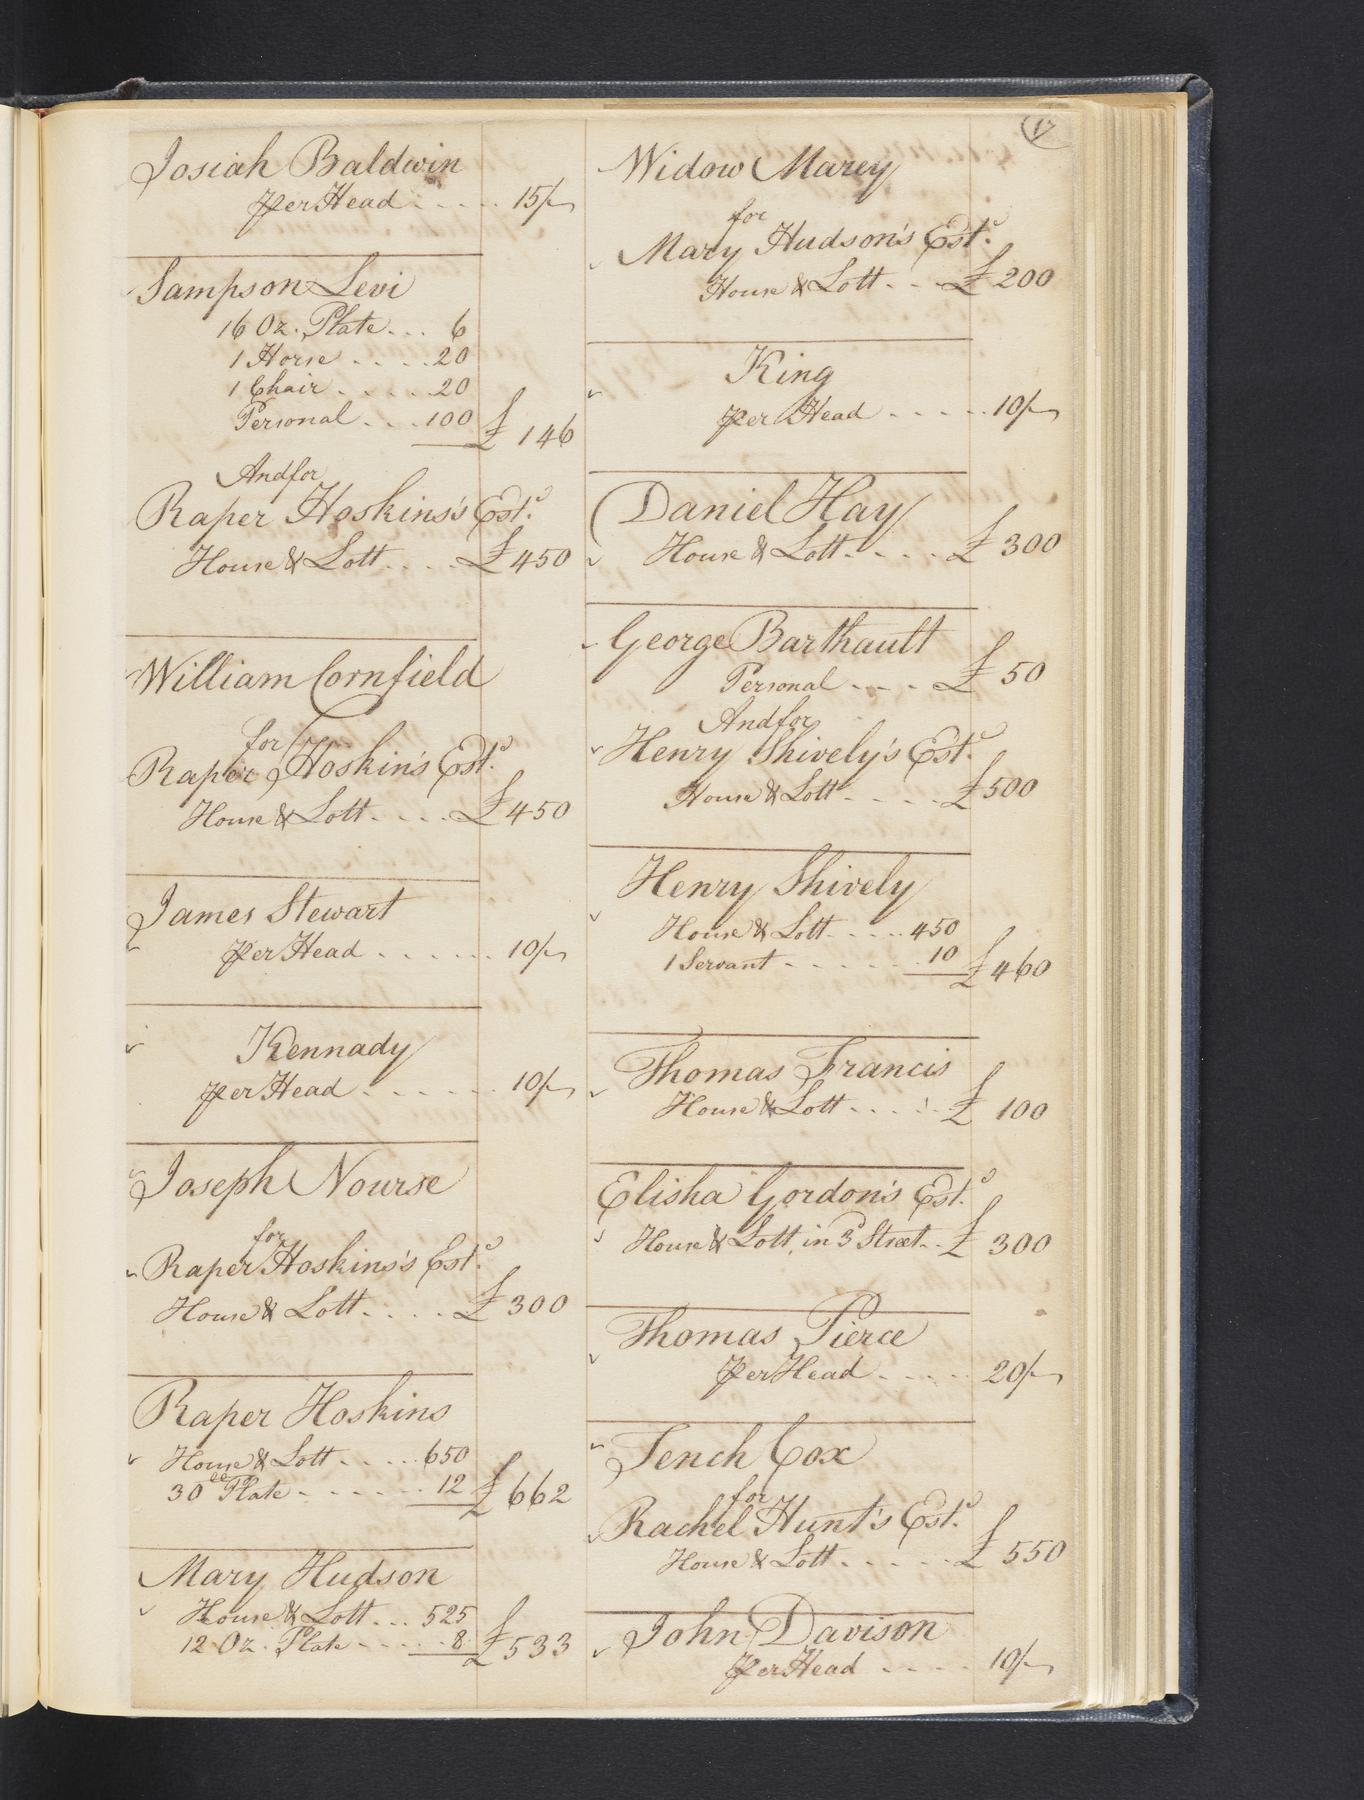 17
Josiah Baldwin
per Head . . . . . 15/-
Sampson Levi
16 Oz. Plate . . . 6
1 Horse . . . . . 20
1 Chair . . . . . 20
Personal . . . 100 £ 146
And for
Raper Hoskins's Est.e
House & Lott . . . . £ 450
William Cornfield
for
Raper Hoskins Est.e
House & Lott . . . . £ 450
James Stewart
per Head . . . . . . 10/-
Kennady
per Head . . . . . . 10/-
Joseph Nourse
for
Raper Hoskins's Est.e
House & Lott . . . . £ 300
Raper Hoskins
House & Lott . . . . . 650
30 Plate . . . . . . . 12 £ 662
Mary Hudson
House & Lott . . . 525
12 Oz. Plate . . . . . 8 £ 533
Widow Marey
for
Mary Hudson's Est.e
House & Lott . . £ 200
King
per Head . . . . . 10/-
Daniel Hay
House & Lott . . . . £ 300
George Barthault
Personal . . . . £ 50
And for
Henry Shively's Est.e
House & Lott . . . . £ 500
Henry Shively
House & Lott . . . . . 450
1 Servant . . . . . . 10 £ 460
Thomas Francis
House & Lott . . . . . £ 100
Elisha Gordon's Est.e
House & Lott, in 3d Street . . £ 300
Thomas Pierce
per Head . . . . . 20/-
Tench Cox
for
Rachel Hunt's Est.e
House & Lott . . . . . £ 550
John Davison
per Head . . . . 10/-